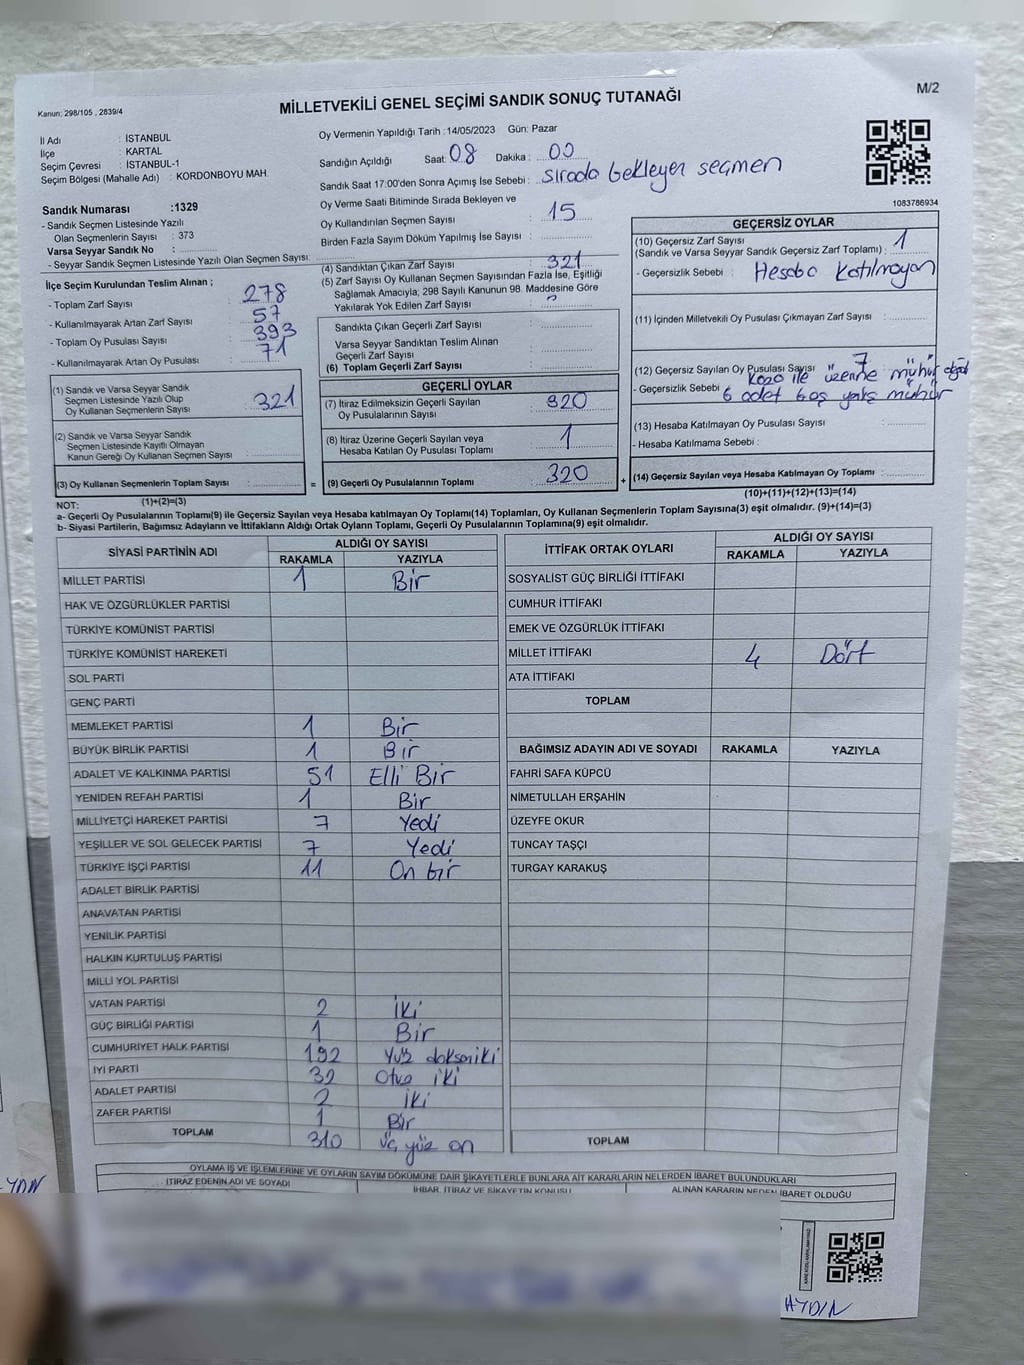 Kanun: 298/105 , 2839/4
MİLLETVEKİLİ GENEL SEÇİMİ SANDIK SONUÇ TUTANAĞI
M/2
İl Adı : İSTANBUL
İlçe : KARTAL
Seçim Çevresi : İSTANBUL-1
Seçim Bölgesi (Mahalle Adı) : KORDONBOYU MAH.
Oy Vermenin Yapıldığı Tarih : 14/05/2023 Gün: Pazar
Sandığın Açıldığı Saat: 08 Dakika : 00
Sandık Saat 17:00'den Sonra Açılmış İse Sebebi : sırada bekleyen seçmen
Oy Verme Saati Bitiminde Sırada Bekleyen ve
Oy Kullandırılan Seçmen Sayısı : 15
Birden Fazla Sayım Döküm Yapılmış İse Sayısı :
1083786934
Sandık Numarası :1329
- Sandık Seçmen Listesinde Yazılı
Olan Seçmenlerin Sayısı : 373
Varsa Seyyar Sandık No :
- Seyyar Sandık Seçmen Listesinde Yazılı Olan Seçmen Sayısı:
İlçe Seçim Kurulundan Teslim Alınan ;
- Toplam Zarf Sayısı : 278
- Kullanılmayarak Artan Zarf Sayısı : 57
- Toplam Oy Pusulası Sayısı : 393
- Kullanılmayarak Artan Oy Pusulası : 71
(1) Sandık ve Varsa Seyyar Sandık
Seçmen Listesinde Yazılı Olup
Oy Kullanan Seçmenlerin Sayısı : 321
(2) Sandık ve Varsa Seyyar Sandık
Seçmen Listesinde Kayıtlı Olmayan
Kanun Gereği Oy Kullanan Seçmen Sayısı :
(3) Oy Kullanan Seçmenlerin Toplam Sayısı :
(1)+(2)=(3)
(4) Sandıktan Çıkan Zarf Sayısı : 321
(5) Zarf Sayısı Oy Kullanan Seçmen Sayısından Fazla İse, Eşitliği
Sağlamak Amacıyla; 298 Sayılı Kanunun 98. Maddesine Göre
Yakılarak Yok Edilen Zarf Sayısı :
Sandıkta Çıkan Geçerli Zarf Sayısı :
Varsa Seyyar Sandıktan Teslim Alınan
Geçerli Zarf Sayısı :
(6) Toplam Geçerli Zarf Sayısı :
GEÇERLİ OYLAR
(7) İtiraz Edilmeksizin Geçerli Sayılan
Oy Pusulalarının Sayısı : 320
(8) İtiraz Üzerine Geçerli Sayılan veya
Hesaba Katılan Oy Pusulası Toplamı : 1
= (9) Geçerli Oy Pusulalarının Toplamı : 320
GEÇERSİZ OYLAR
(10) Geçersiz Zarf Sayısı
(Sandık ve Varsa Seyyar Sandık Geçersiz Zarf Toplamı) : 1
- Geçersizlik Sebebi : Hesaba Katılmayan
(11) İçinden Milletvekili Oy Pusulası Çıkmayan Zarf Sayısı :
(12) Geçersiz Sayılan Oy Pusulası Sayısı : 7
- Geçersizlik Sebebi : ile üzerine mühür
6 adet boş mühür
(13) Hesaba Katılmayan Oy Pusulası Sayısı :
- Hesaba Katılmama Sebebi :
+ (14) Geçersiz Sayılan veya Hesaba Katılmayan Oy Toplamı :
(10)+(11)+(12)+(13)=(14)
NOT:
a- Geçerli Oy Pusulalarının Toplamı(9) ile Geçersiz Sayılan veya Hesaba katılmayan Oy Toplamı(14) Toplamları, Oy Kullanan Seçmenlerin Toplam Sayısına(3) eşit olmalıdır. (9)+(14)=(3)
b- Siyasi Partilerin, Bağımsız Adayların ve İttifakların Aldığı Ortak Oyların Toplamı, Geçerli Oy Pusulalarının Toplamına(9) eşit olmalıdır.
SİYASİ PARTİNİN ADI ALDIĞI OY SAYISI
RAKAMLA YAZIYLA
MİLLET PARTİSİ 1 Bir
HAK VE ÖZGÜRLÜKLER PARTİSİ
TÜRKİYE KOMÜNİST PARTİSİ
TÜRKİYE KOMÜNİST HAREKETİ
SOL PARTİ
GENÇ PARTİ
MEMLEKET PARTİSİ 1 Bir
BÜYÜK BİRLİK PARTİSİ 1 Bir
ADALET VE KALKINMA PARTİSİ 51 Elli Bir
YENİDEN REFAH PARTİSİ 1 Bir
MİLLİYETÇİ HAREKET PARTİSİ 7 Yedi
YEŞİLLER VE SOL GELECEK PARTİSİ 7 Yedi
TÜRKİYE İŞÇİ PARTİSİ 11 On bir
ADALET BİRLİK PARTİSİ
ANAVATAN PARTİSİ
YENİLİK PARTİSİ
HALKIN KURTULUŞ PARTİSİ
MİLLİ YOL PARTİSİ
VATAN PARTİSİ 2 İki
GÜÇ BİRLİĞİ PARTİSİ 1 Bir
CUMHURİYET HALK PARTİSİ 192 Yüz doksaniki
İYİ PARTİ 32 Otuz iki
ADALET PARTİSİ 2 İki
ZAFER PARTİSİ 1 Bir
TOPLAM 310 Üç yüz on
İTTİFAK ORTAK OYLARI ALDIĞI OY SAYISI
RAKAMLA YAZIYLA
SOSYALİST GÜÇ BİRLİĞİ İTTİFAKI
CUMHUR İTTİFAKI
EMEK VE ÖZGÜRLÜK İTTİFAKI
MİLLET İTTİFAKI 4 Dört
ATA İTTİFAKI
TOPLAM
BAĞIMSIZ ADAYIN ADI VE SOYADI RAKAMLA YAZIYLA
FAHRİ SAFA KÜPCÜ
NİMETULLAH ERŞAHİN
ÜZEYFE OKUR
TUNCAY TAŞÇI
TURGAY KARAKUŞ
TOPLAM
OYLAMA İŞ VE İŞLEMLERİNE VE OYLARIN SAYIM DÖKÜMÜNE DAİR ŞİKAYETLERLE BUNLARA AİT KARARLARIN NELERDEN İBARET BULUNDUKLARI
İTİRAZ EDENİN ADI VE SOYADI İHBAR, İTİRAZ VE ŞİKAYETİN KONUSU ALINAN KARARIN NEDEN İBARET OLDUĞU
AYDIN